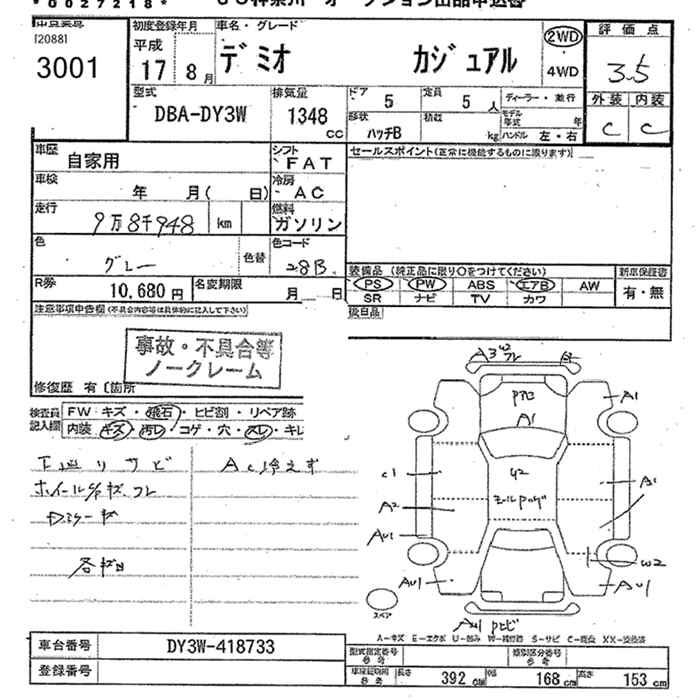 *00272718*
出品票
[2088]
3001
初度登録年月
平成
17 8月
車名・グレード
デミオ カジュアル
2WD
4WD
評価点
3.5
外装 内装
C C
型式
DBA-DY3W
排気量
1348
CC
ドア 5
定員 5人
ディーラー・並行
形状
ハッチB
積載
kg
モデル年式 年
ハンドル 左・右
車歴
自家用
シフト
FAT
セールスポイント(正常に機能するものに限ります)
車検
年 月( 日)
冷房
AC
走行
9万8千948 km
燃料
ガソリン
色
グレー
色替
色コード
28B
装備品(純正品に限り○をつけてください)
新車保証書
PS PW ABS エアB AW
SR ナビ TV カワ
有・無
R券
10,680円
名変期限
月 日
後日品
注意事項申告欄(不具合内容等は具体的に記入して下さい)
事故・不具合等
ノークレーム
修復歴 有〔箇所
検査員記入欄
FW キズ・飛石・ヒビ割・リペア跡
内装 キズ・汚レ・コゲ・穴・スレ・キレ
下廻りサビ
AC冷えず
A1
A1
C1
A2
U2
A1
W2
AU1
AU1
AU1
スペア
A-キズ E-エクボ U-凹み W-補修跡 S-サビ C-腐食 XX-交換済
車台番号
DY3W-418733
登録番号
型式指定番号
参考
類別区分番号
参考
車検証期間
参考
長さ 392cm 巾 168cm 高さ 153cm